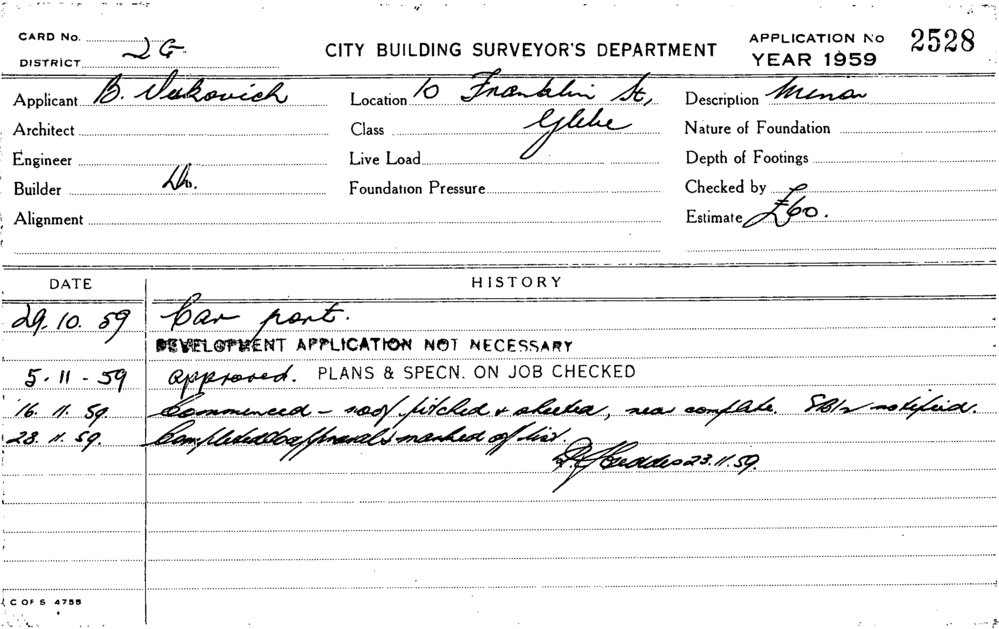 CARD No.
DISTRICT 2G
CITY BUILDING SURVEYOR'S DEPARTMENT
APPLICATION No 2528
YEAR 1959
Applicant B. Vukovich
Location 10 Franklin St,
Glebe
Description Minor
Architect
Class
Nature of Foundation
Engineer
Live Load
Depth of Footings
Builder Do.
Foundation Pressure
Checked by
Alignment
Estimate £60.
DATE HISTORY
29.10.59 Car port.
DEVELOPMENT APPLICATION NOT NECESSARY
5.11-59 approved. PLANS & SPECN. ON JOB CHECKED
16.11.59. Commenced - roof pitched & sheeted, near complete. notified.
23.11.59. Completed to approval & marked off list.
23.11.59.
C OF S 4755